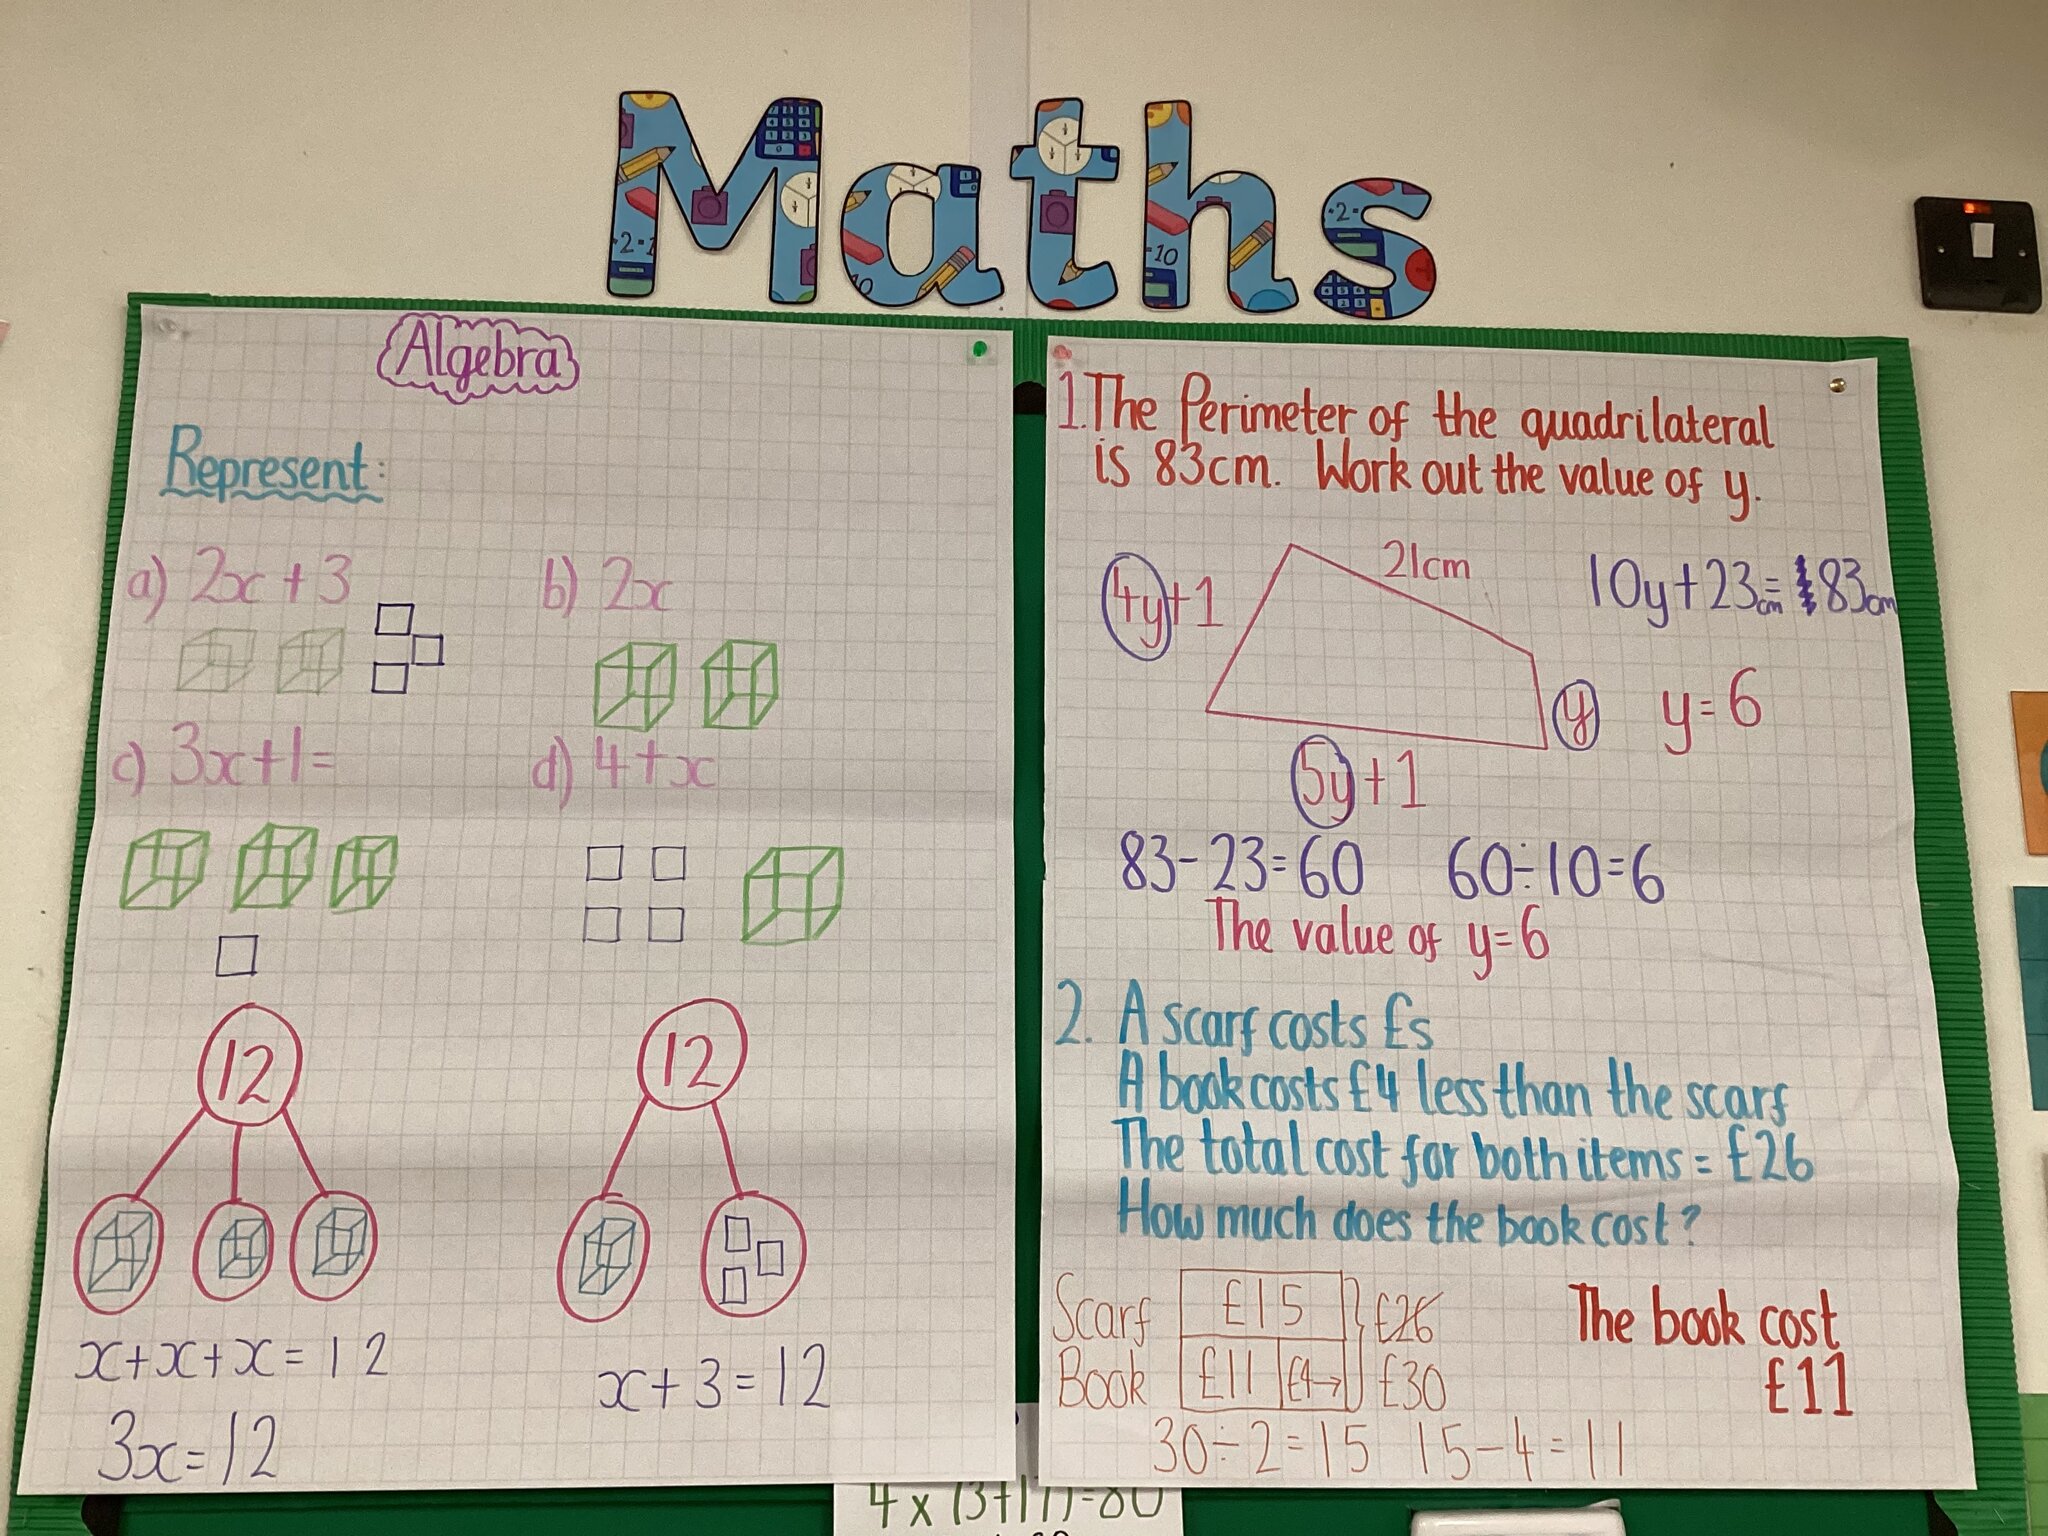 Maths
Algebra
Represent:
a) 2x + 3
b) 2x
c) 3x+1=
d) 4+x
12
12
x+x+x=12
x+3=12
3x=12
1. The Perimeter of the quadrilateral
is 83cm. Work out the value of y.
4y+1
21cm
10y+23cm=83cm
y
y=6
5y+1
83-23=60
60÷10=6
The value of y=6
2. A scarf costs £s
A book costs £4 less than the scarf
The total cost for both items = £26
How much does the book cost?
Scarf £15 £26
Book £11 £4→ £30
The book cost
£11
30÷2=15 15-4=11